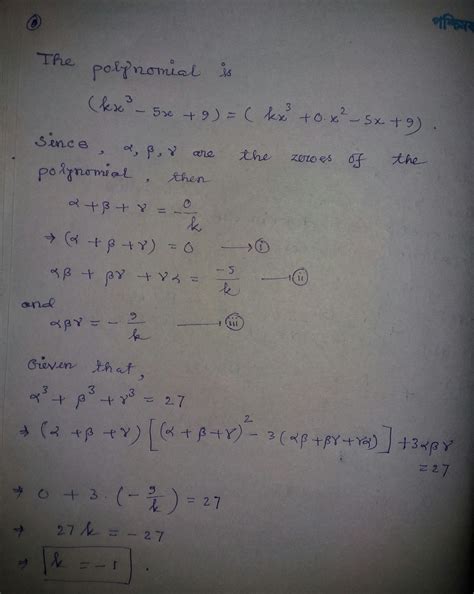 পশ্চিমব
The polynomial is
(kx³ - 5x + 9) = (kx³ + 0·x² - 5x + 9).
Since, α, β, γ are the zeroes of the
polynomial, then
α + β + γ = -0/k
⇒ (α + β + γ) = 0 → (i)
αβ + βγ + γα = -5/k → (ii)
and
αβγ = -9/k → (iii)
Given that,
α³ + β³ + γ³ = 27
⇒ (α + β + γ) [(α + β + γ)² - 3(αβ + βγ + γα)] + 3αβγ
= 27
⇒ 0 + 3·(-9/k) = 27
⇒ 27k = -27
⇒ k = -1.